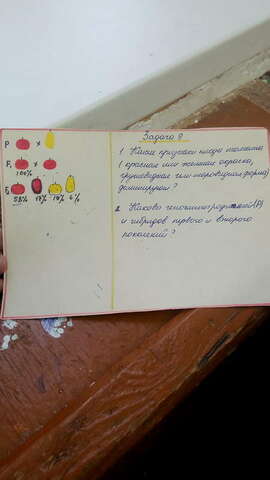 Задача 9
P х
1. Какие признаки плода
(красная или желтая окраска,
F₁ х
100%
грушевидная или шаровидная форма)
доминируют?
F₂
58% 18% 18% 6%
2. Каковы генотипы родителей (P)
и гибридов первого и второго
поколений?